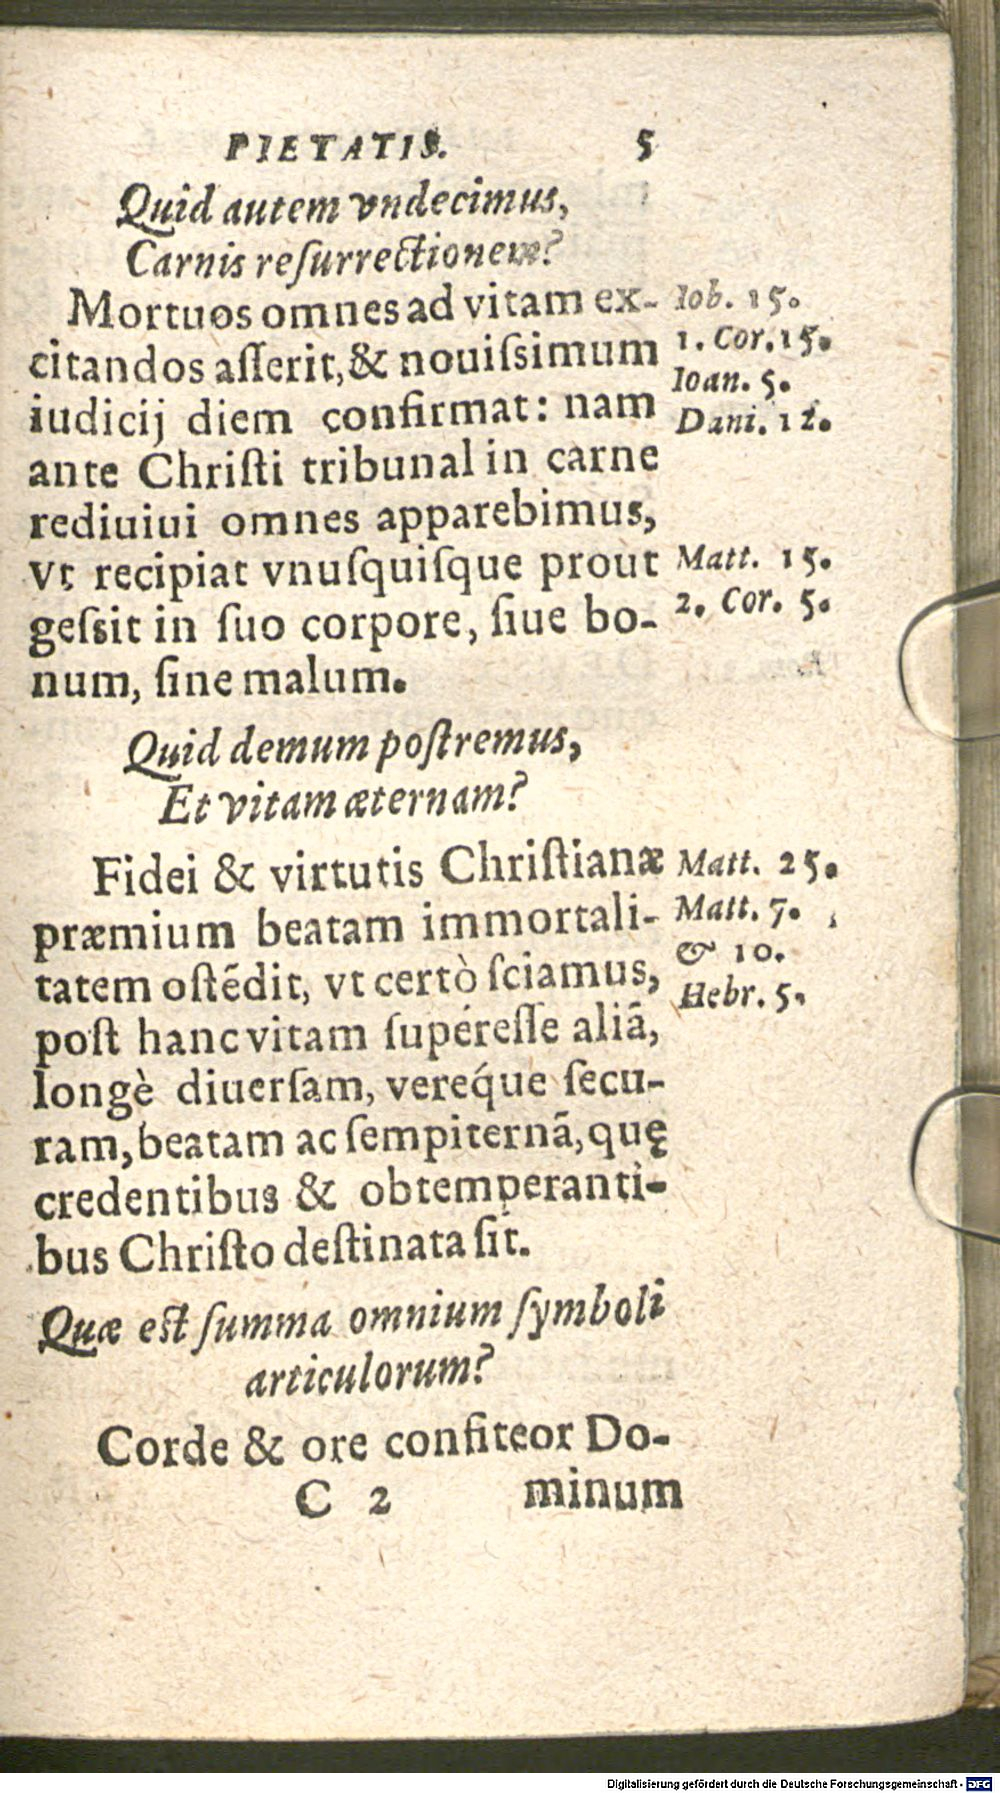 PIETATIS. 5
Quid autem vndecimus,
Carnis reſurrectionem?
Mortuos omnes ad vitam ex- Iob. 15.
citandos aſſerit, & nouiſsimum 1. Cor. 15.
Ioan. 5.
iudicij diem confirmat: nam Dani. 12.
ante Chriſti tribunal in carne
rediuiui omnes apparebimus,
vt recipiat vnuſquiſque prout Matt. 15.
geſsit in ſuo corpore, ſiue bo- 2. Cor. 5.
num, ſine malum.
Quid demum poſtremus,
Et vitam æternam?
Fidei & virtutis Chriſtianæ Matt. 25.
præmium beatam immortali- Matt. 7.
& 10.
tatem oſtẽdit, vt certò ſciamus, Hebr. 5.
poſt hanc vitam ſupéreſſe aliã,
longè diuerſam, vereq́ue ſecu-
ram, beatam ac ſempiternã, quę
credentibus & obtemperanti-
bus Chriſto deſtinata ſit.
Quæ est ſumma omnium ſymboli
articulorum?
Corde & ore confiteor Do-
C 2 minum
Digitalisierung gefördert durch die Deutsche Forschungsgemeinschaft - DFG